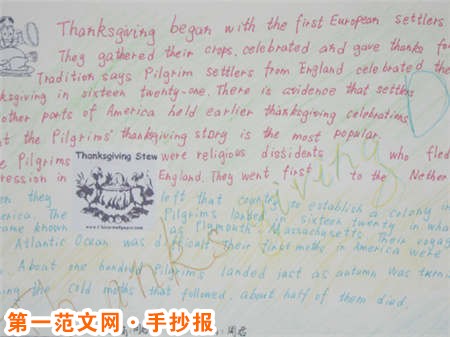 Thanksgiving began with the first European settlers.
They gathered their crops, celebrated and gave thanks fo
Tradition says Pilgrim settlers from England celebrated the
ksgiving in sixteen twenty-one. There is evidence that settlers
other parts of America held earlier thanksgiving celebrations
at the Pilgrims' thanksgiving story is the most popular.
e Pilgrims were religious dissidents who fled
Thanksgiving Stew
ression in England. They went first to the Nether
on they left that country to establish a colony in
erica. The Pilgrims landed in sixteen twenty in what
came known as Plymouth Massachusetts. Their voyage
Atlantic Ocean was difficult. Their first moths in America were
About one hundred Pilgrims landed just as autumn was turnin
ing the cold moths that followed, about half of them died.
Thanksgiving
第一范文网·手抄报